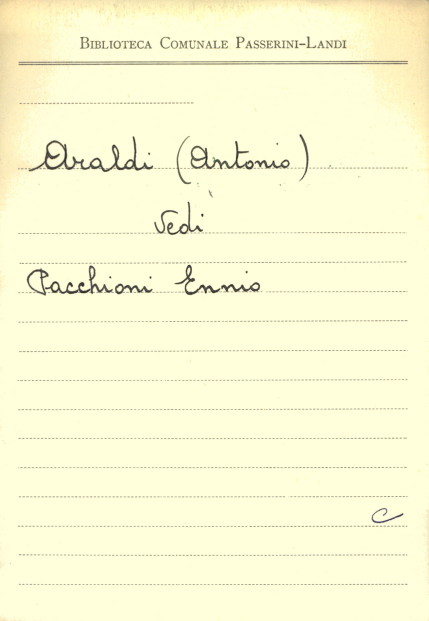 Biblioteca Comunale Passerini-Landi
Araldi (Antonio)
Vedi
Pacchioni Ennio
C